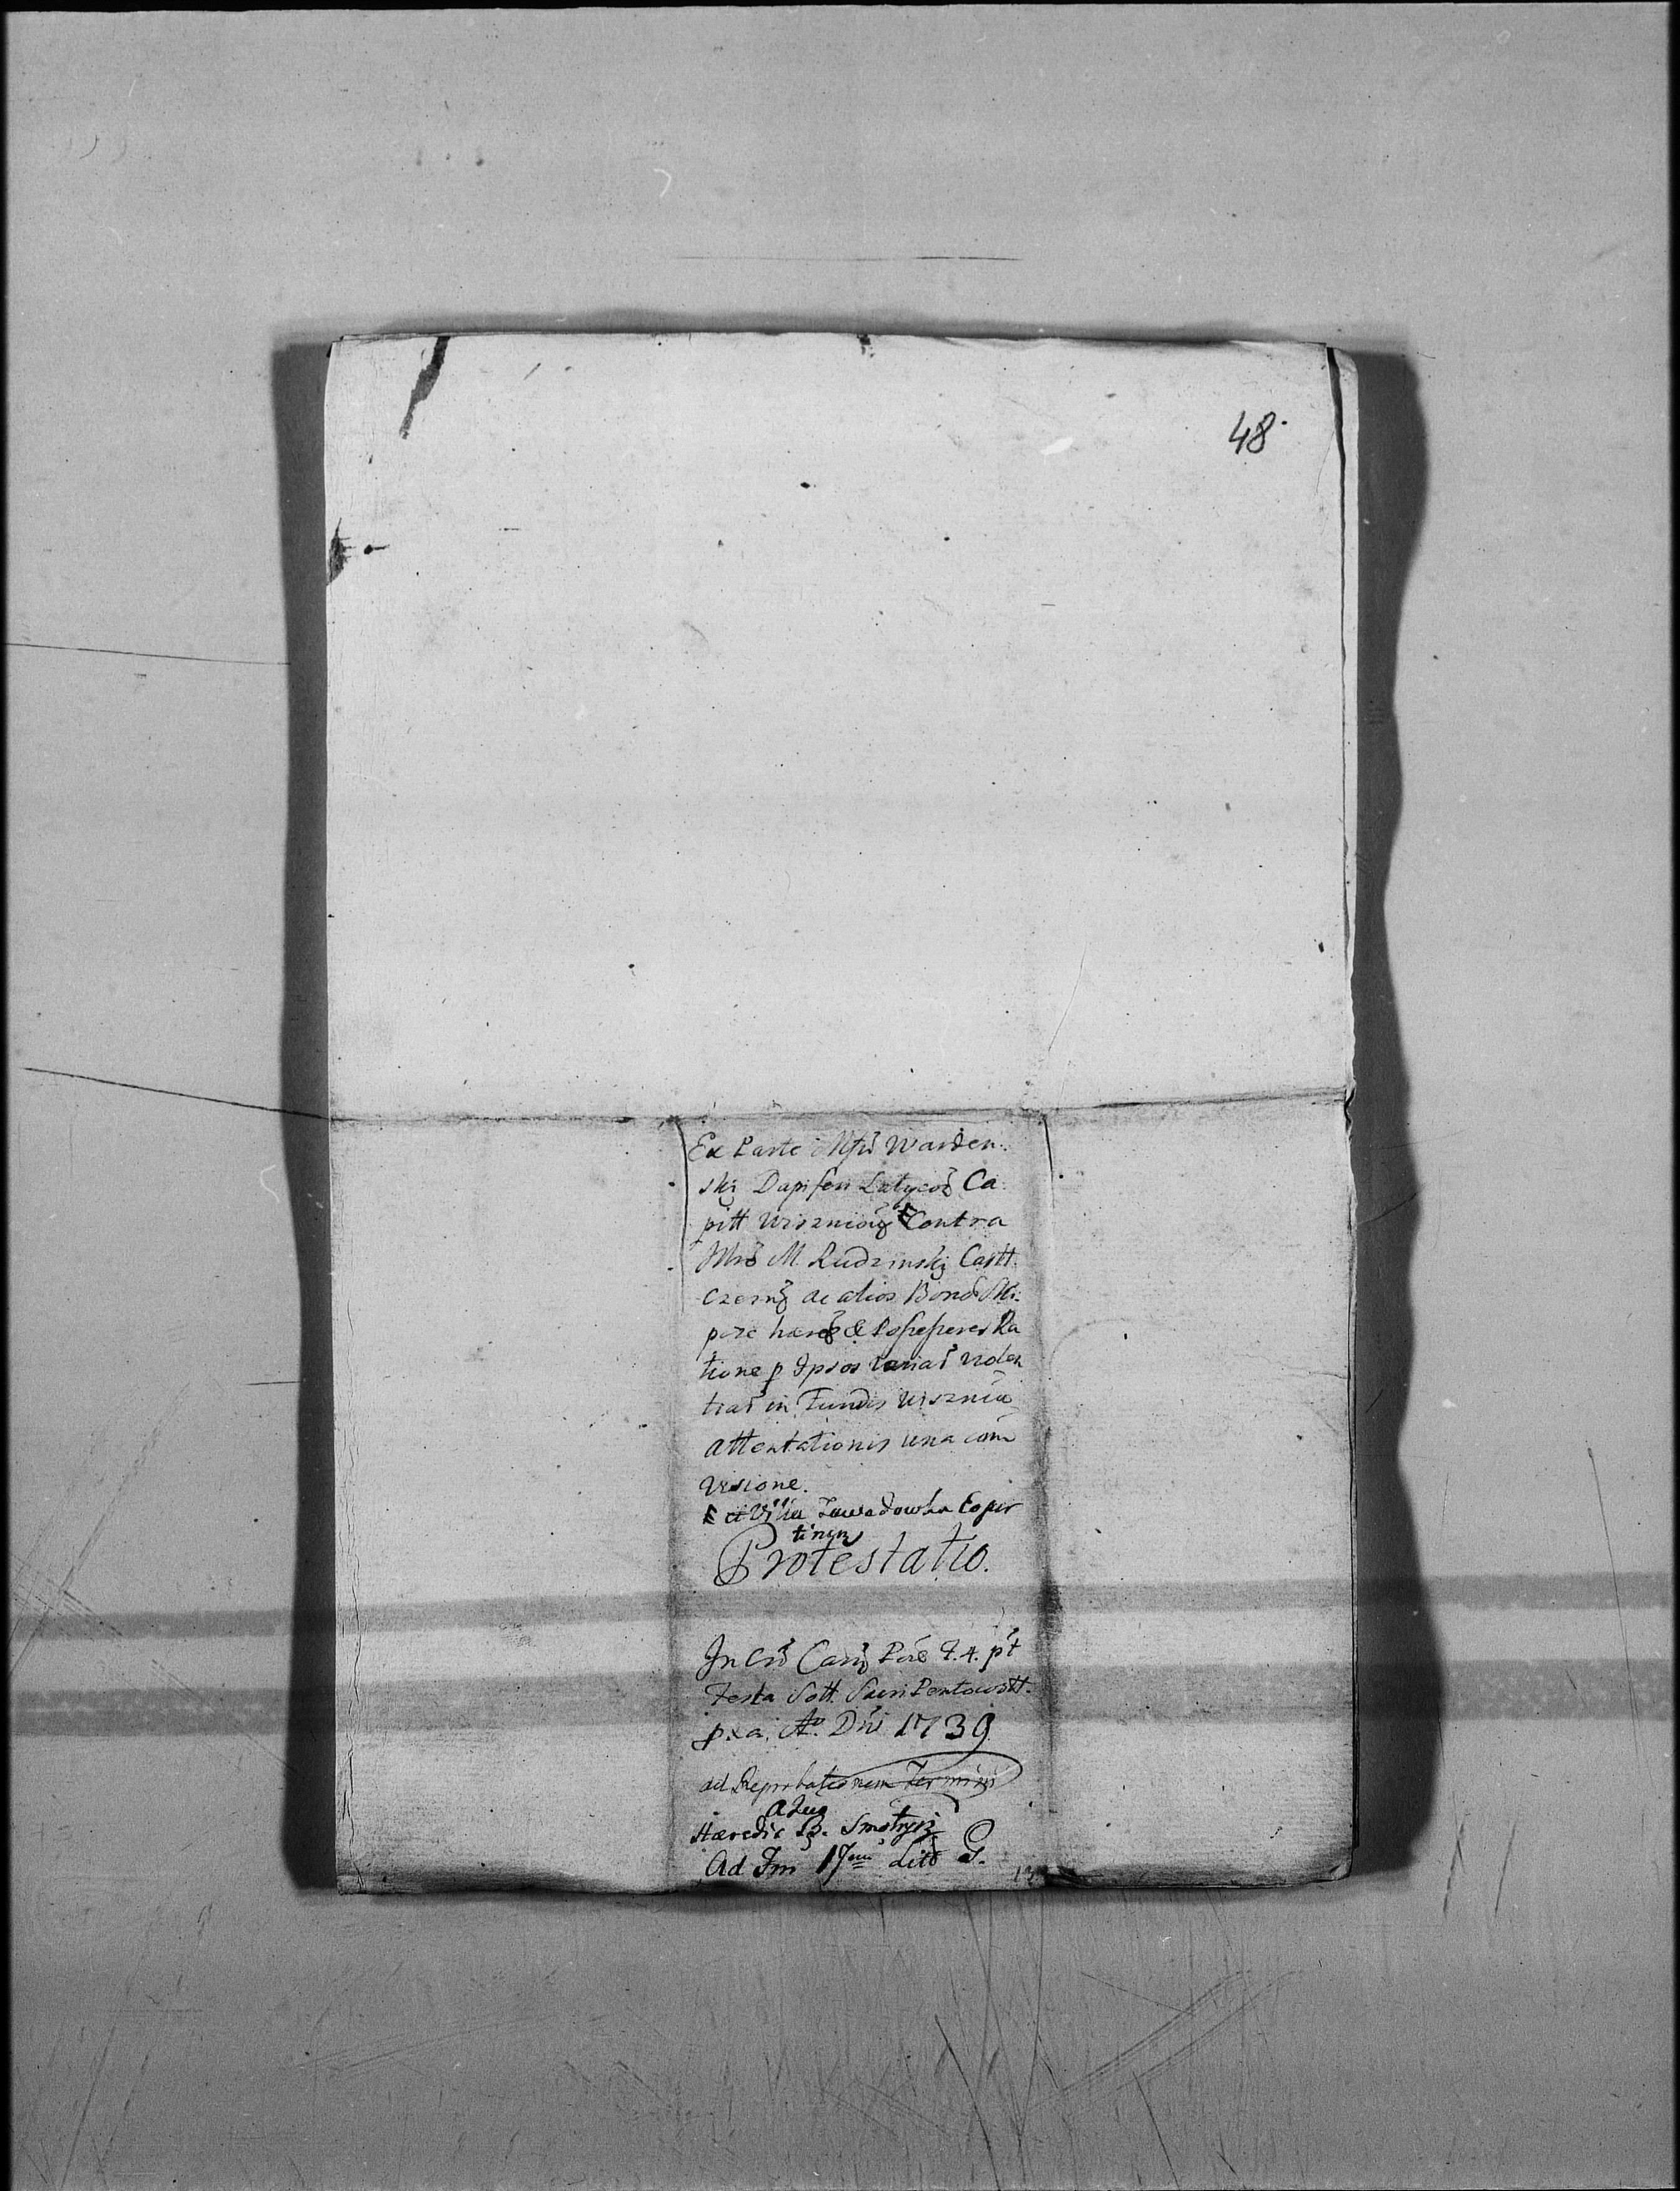 48.
Ex Parte Mfci Warden
ski Dapiferi Latycov Ca
pitt Wiszniov Contra
M. Rudzinski Castt.
Czerns ac alios Bonor
hared & Possessores Ra
tione p Ipsos variar violen
tiar in Fundis Wisznio
attentationis una cum
Visione.
et Villa Zawadowka Eo per
tinen
Protestatio.
In Cro Carn F. 4. pt
Festa Sott. Sacri Pentecostt.
p. x a. Ao Dni 1739
ad Reprobationem Termini
Haredit B. Smotrycz
Ad Im 17um Lito G.